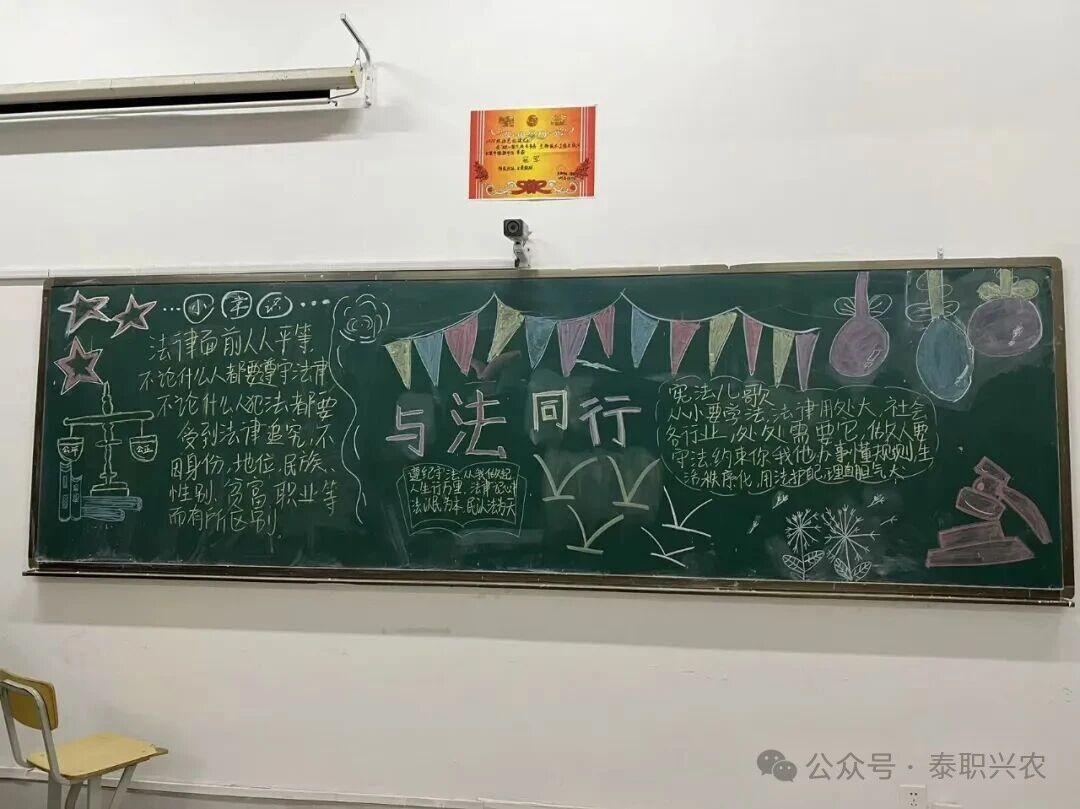 …小常识…
法律面前人人平等
不论什么人都要遵守法律
不论什么人犯法都要
受到法律追究,不
因身份,地位,民族、
性别、贫富、职业等
而有所区别.
公平
公正
与法同行
遵纪守法,从我做起
人生行万里,法律记心中
宪法儿歌
从小要学法,法律用处大,社会
各行业,处处需要它,做人要
守法,约束你我他,办事懂规则,生
活秩序化,用法护配正理自胆气大
公众号·泰职兴农